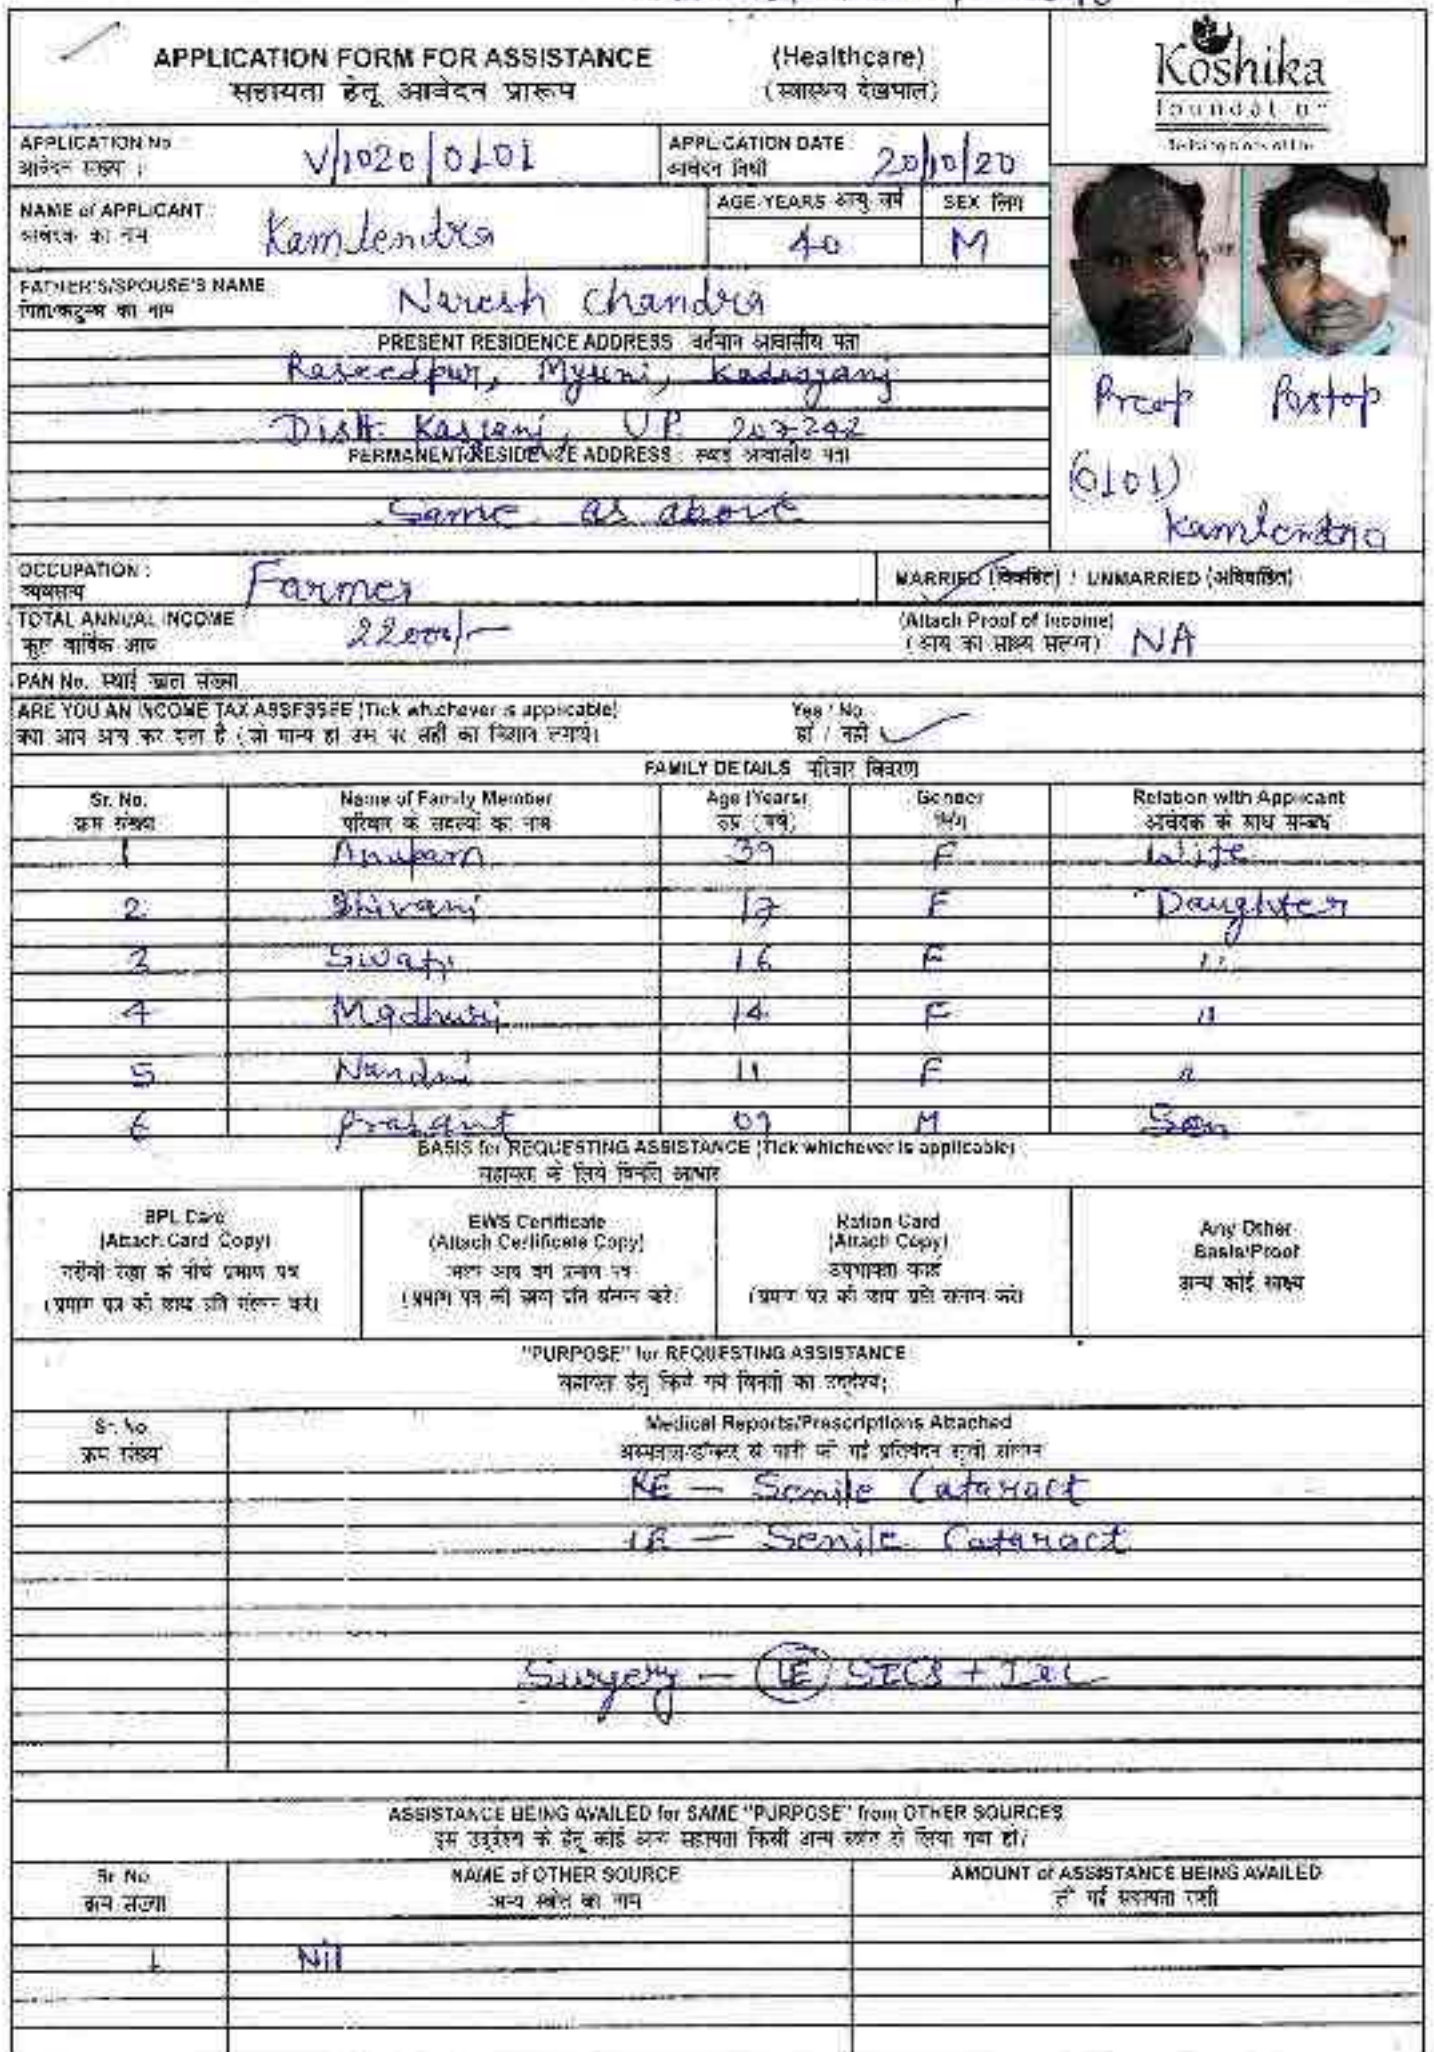 APPLICATION FORM FOR ASSISTANCE (Healthcare)
सहायता हेतू आवेदन प्रारूप (स्वास्थ्य देखभाल)
Koshika
foundation
APPLICATION No :
आवेदन संख्या :
V/1020/0101
APPLICATION DATE :
आवेदन तिथी
20/10/20
NAME of APPLICANT :
आवेदक का नाम
Kamlendra
AGE-YEARS आयु वर्ष
40
SEX लिंग
M
FATHER'S/SPOUSE'S NAME
पिता/कटुम्ब का नाम
Naresh Chandra
PRESENT RESIDENCE ADDRESS वर्तमान आवासीय पता
Raseedpur, Myuni, Kadarganj
Distt. Kasganj, U.P. 207242
PERMANENT RESIDENCE ADDRESS : स्थाई आवासीय पता
Same as above
Preop Postop
(0101)
Kamlendra
OCCUPATION :
व्यवसाय
Farmer
MARRIED (विवाहित) / UNMARRIED (अविवाहित)
TOTAL ANNUAL INCOME
कुल वार्षिक आय
22000/-
(Attach Proof of Income)
(आय का साक्ष्य संलग्न)
NA
PAN No. स्थाई खाता संख्या
ARE YOU AN INCOME TAX ASSESSEE (Tick whichever is applicable)
Yes / No
हाँ / नहीं
FAMILY DETAILS परिवार विवरण
Sr. No. Name of Family Member Age (Years) Gender Relation with Applicant
क्रम संख्या परिवार के सदस्यों का नाम उम्र (वर्ष) लिंग आवेदक के साथ सम्बंध
1 Anupam 39 F Wife
2 Shivani 17 F Daughter
3 Swati 16 F "
4 Madhuri 14 F "
5 Nandni 11 F "
6 Prashant 09 M Son
BASIS for REQUESTING ASSISTANCE (Tick whichever is applicable)
सहायता के लिये विनति आधार
BPL Card
(Attach Card Copy)
गरीबी रेखा के नीचे प्रमाण पत्र
(प्रमाण पत्र की छाया प्रति संलग्न करें)
EWS Certificate
(Attach Certificate Copy)
अल्प आय वर्ग प्रमाण पत्र
(प्रमाण पत्र की छाया प्रति संलग्न करें)
Ration Card
(Attach Copy)
उपभोक्ता कार्ड
(प्रमाण पत्र की छाया प्रति संलग्न करें)
Any Other
Basis/Proof
अन्य कोई साक्ष्य
"PURPOSE" for REQUESTING ASSISTANCE
सहायता हेतू किये गये विनती का उद्देश्य:
Sr. No Medical Reports/Prescriptions Attached
क्रम संख्या
RE - Senile Cataract
LE - Senile Cataract
Surgery - (LE) SICS + IOL
ASSISTANCE BEING AVAILED for SAME "PURPOSE" from OTHER SOURCES
Sr. No NAME of OTHER SOURCE AMOUNT of ASSISTANCE BEING AVAILED
क्रम संख्या अन्य स्त्रोत का नाम ली गई सहायता राशी
1 Nil